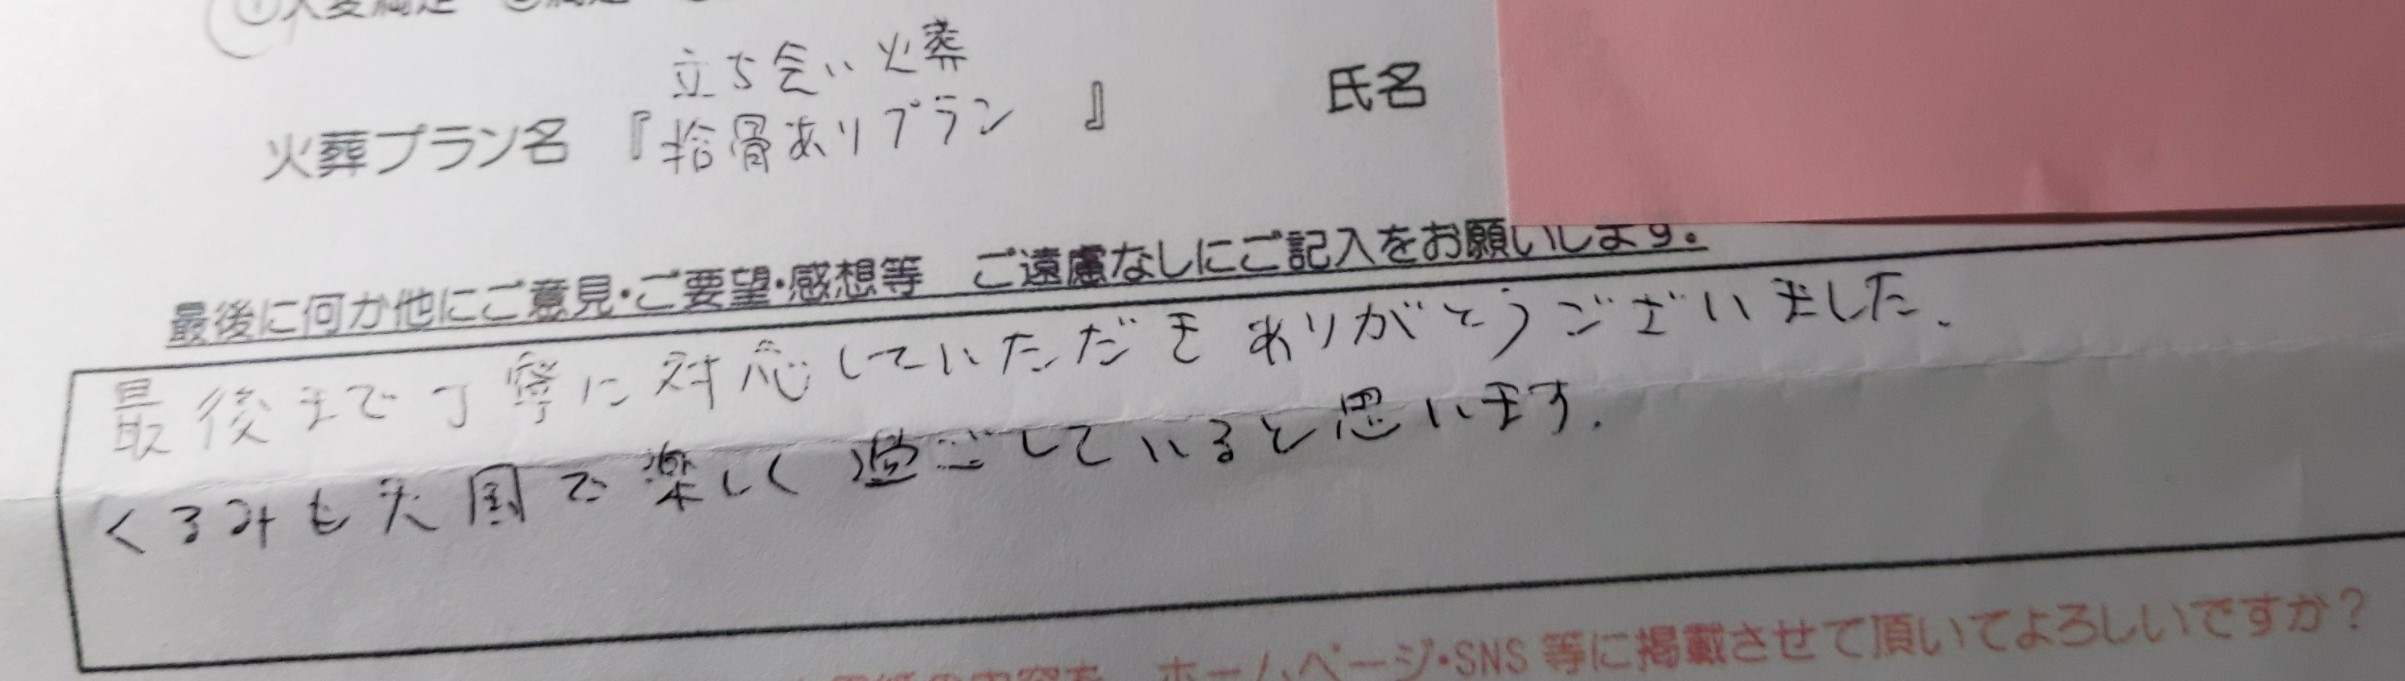 ①大変満足
立ち会い火葬
火葬プラン名 『拾骨ありプラン 』 氏名
最後に何か他にご意見・ご要望・感想等 ご遠慮なしにご記入をお願いします。
最後まで丁寧に対応していただきありがとうございました。
くるみも天国で楽しく過ごしていると思います。
ホームページ・SNS 等に掲載させて頂いてよろしいですか？